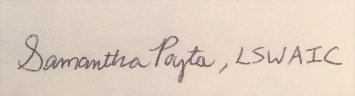 Samantha Poyta, LSWAIC